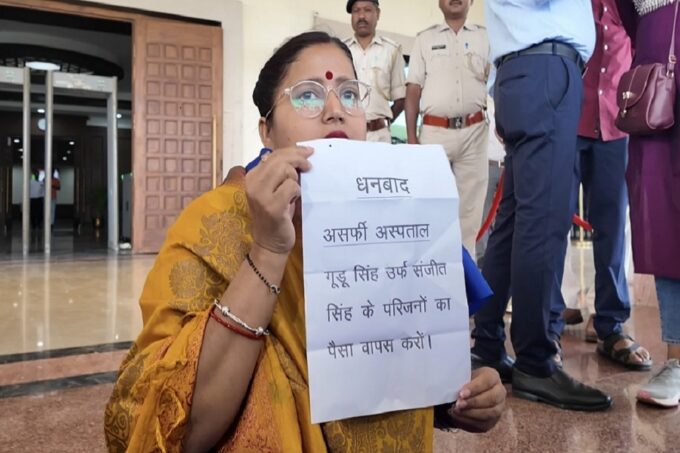 धनबाद
असर्फी अस्पताल
गूडू सिंह उर्फ संजीत
सिंह के परिजनों का
पैसा वापस करों।